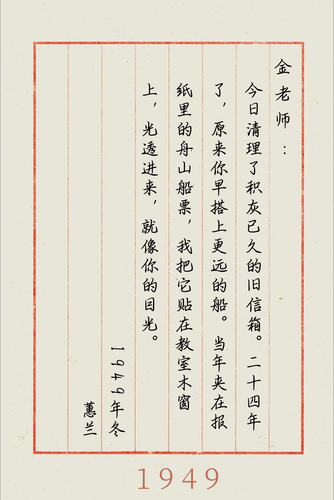 金老师：
今日清理了积灰已久的旧信箱。二十四年
了，原来你早搭上更远的船。当年夹在报
纸里的舟山船票，我把它贴在教室木窗
上，光透进来，就像你的目光。
1949年冬
蕙兰
1949